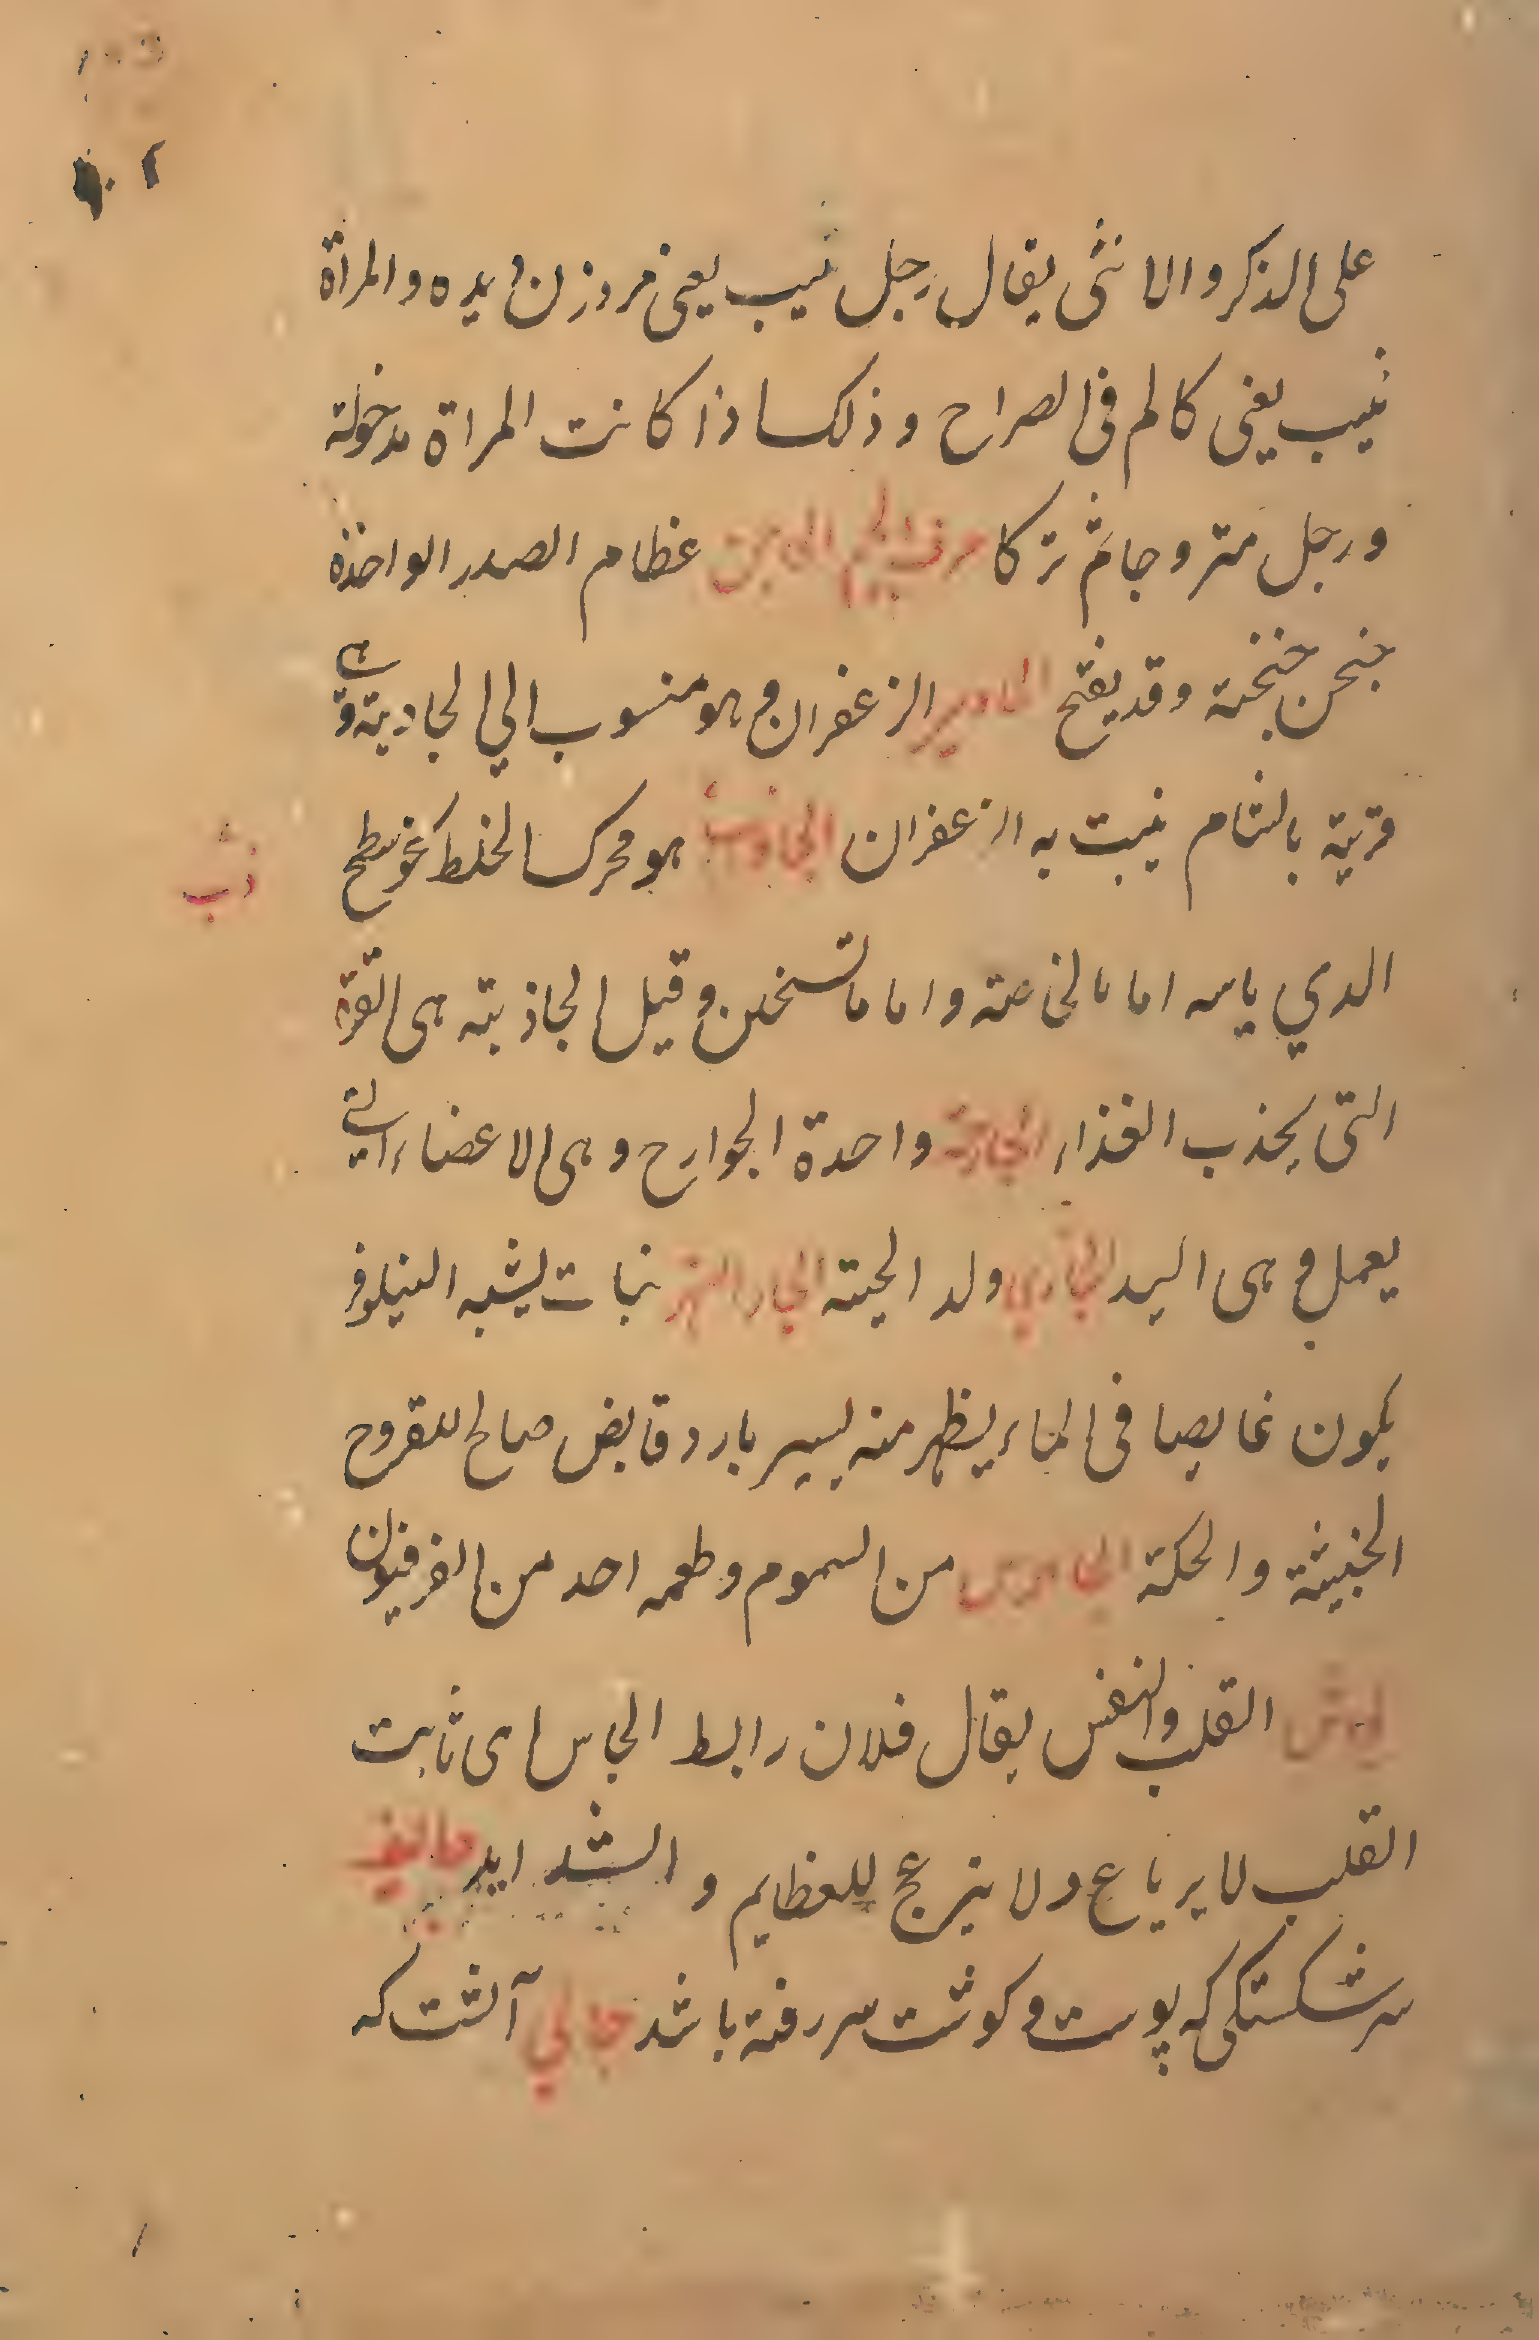 على الذكر والانثى يقال رجل ثيب يعنى مرد زن ديده والمراة
ثيب يعنى كالم فى الصراح وذلك اذا كانت المراة مدخولة
ورجل متزوجا ثم تركا حرف الجيم الجناجن عظام الصدر الواحدة
جنجن جنجنة وقد يفتح الجادي الزعفران وهو منسوب الي الجادية وهى
قرية بالشام ينبت به الزعفران الجاذب هو محرك الخلط نحو سطح
الذي ياسه اما بالخاصة واما بالتسخين وقيل الجاذبته هى القوة
التى يجذب الغذاء الجارحة واحدة الجوارح وهى الاعضاء التي
يعمل وهى اليد الجاري ولد الحية الجار النهر نبات يشبه النيلوفر
يكون غايصا فى الماء يظهر منه يسير بارد قابض صالح للقروح
الخبيثة والحكة من السموم وطعمه احد من الفرفيون
الجاش القلب والنفس يقال فلان رابط الجاس اى ثابت
القلب لا يرياع ولا ينزعج للعظايم و الشدايد جالفه
سر شكستكى كه پوست وكوشت سر رفته باشد جالي آنست كه